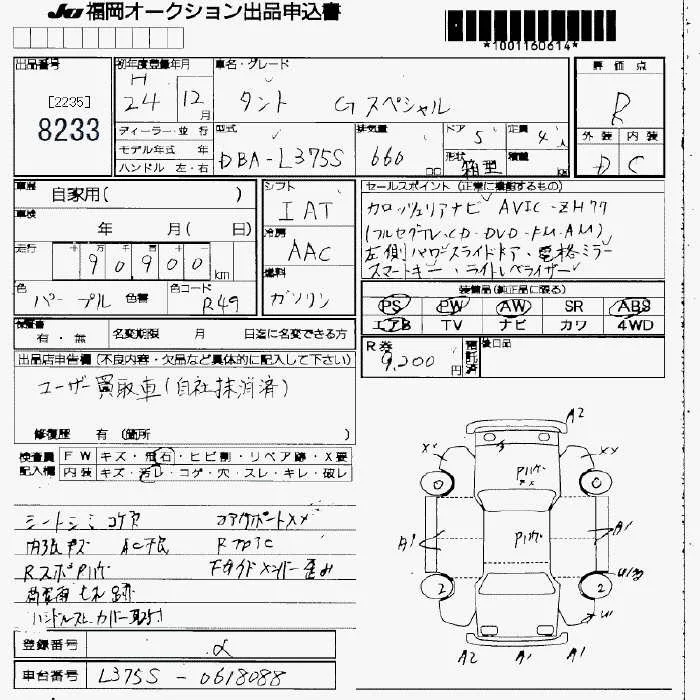 JU 福岡オークション出品申込書
*1001160614*
出品番号
[2235]
8233
初年度登録年月
H
24 12
月
車名・グレード
タント Gスペシャル
評価点
R
外装 内装
D C
ディーラー・並行
モデル年式 年
ハンドル 左・右
型式
DBA-L375S
排気量
660
cc
ドア 5
形状
箱型
定員 4人
積載
車歴
自家用( )
車検
年 月( 日)
走行
90900 km
色
パープル 色替
色コード
R49
シフト
IAT
冷房
AAC
燃料
ガソリン
セールスポイント (正常に機能するもの)
カロッツェリアナビ AVIC-ZH77
(フルセグTV・CD・DVD・FM・AM)
左側パワースライドドア・電格ミラー
スマートキー・ライトレベライザー
装備品(純正品に限る)
PS PW AW SR ABS
エアB TV ナビ カワ 4WD
保証書
有・無
名変期限 月 日迄に名変できる方
R券
9,200円
預託済
後日品
出品店申告欄(不良内容・欠品など具体的に記入して下さい)
ユーザー買取車(自社抹消済)
修復歴 有 (箇所 )
検査員
記入欄
FW キズ・飛石・ヒビ割・リペア跡・X要
内装 キズ・汚レ・コゲ・穴・スレ・キレ・破レ
シートシミ コゲ穴 コアサポートXX
内張キズ
Rスポ Pハゲ Fサイドメンバー歪み
ハンドルスレ カバー
登録番号
車台番号 L375S - 0618088
A2
XX XX
0 0
Pハゲ
Pハゲ
A1 A1
2 2
W
A2 A1 A1